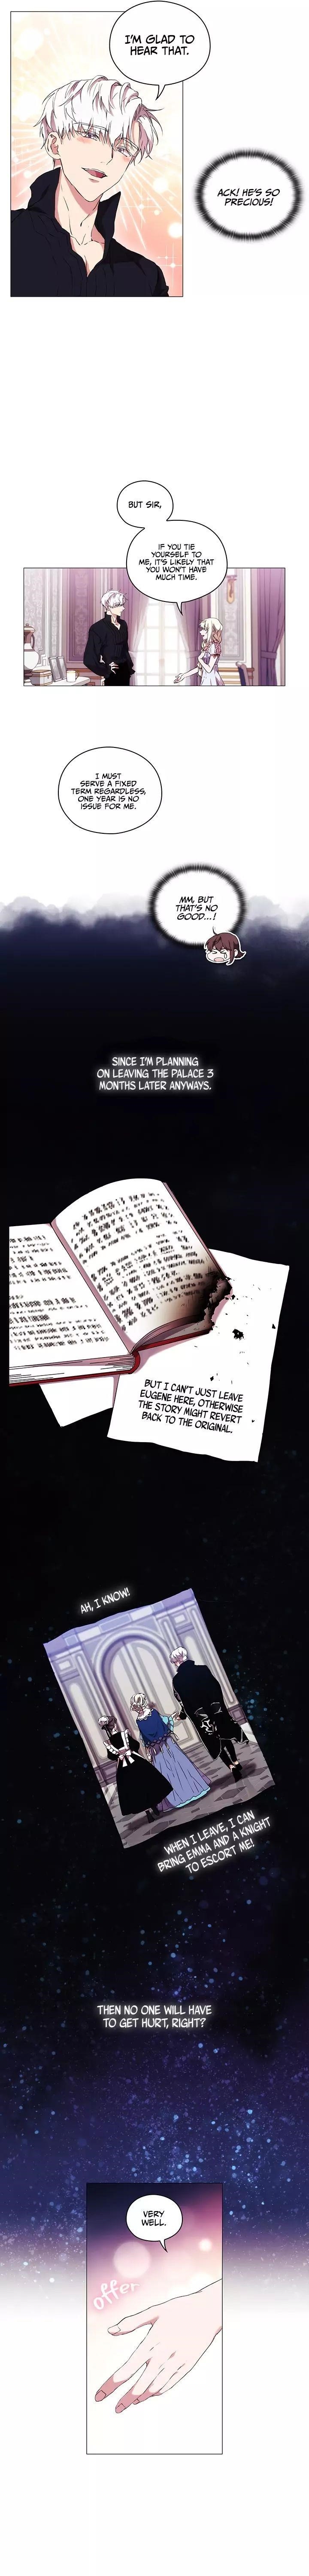 I'M GLAD TO
HEAR THAT.
ACK! HE'S SO
PRECIOUS!
BUT SIR,
IF YOU TIE
YOURSELF TO
ME, IT'S LIKELY THAT
YOU WON'T HAVE
MUCH TIME.
I MUST
SERVE A FIXED
TERM REGARDLESS,
ONE YEAR IS NO
ISSUE FOR ME.
MM, BUT
THAT'S NO
GOOD...!
SINCE I'M PLANNING
ON LEAVING THE PALACE 3
MONTHS LATER ANYWAYS.
BUT I CAN'T JUST LEAVE
EUGENE HERE, OTHERWISE
THE STORY MIGHT REVERT
BACK TO THE ORIGINAL.
AH, I KNOW!
WHEN I LEAVE, I CAN
BRING EMMA AND A KNIGHT
TO ESCORT ME!
THEN NO ONE WILL HAVE
TO GET HURT, RIGHT?
VERY
WELL.
offer